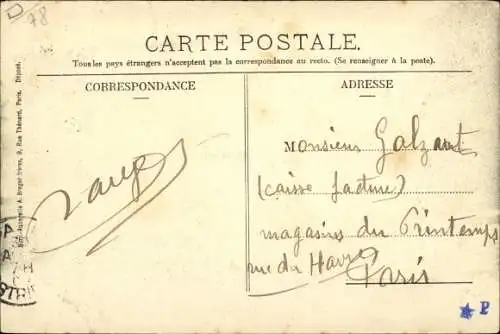 D 78
CARTE POSTALE.
Tous les pays étrangers n'acceptent pas la correspondance au recto. (Se renseigner à la poste).
CORRESPONDANCE
ADRESSE
MONSIEUR Galzant
(caisse facture)
magasins du Printemps
rue du Havre
Paris
A. Breger frères, 9, Rue Thénard, Paris. Déposé.
P